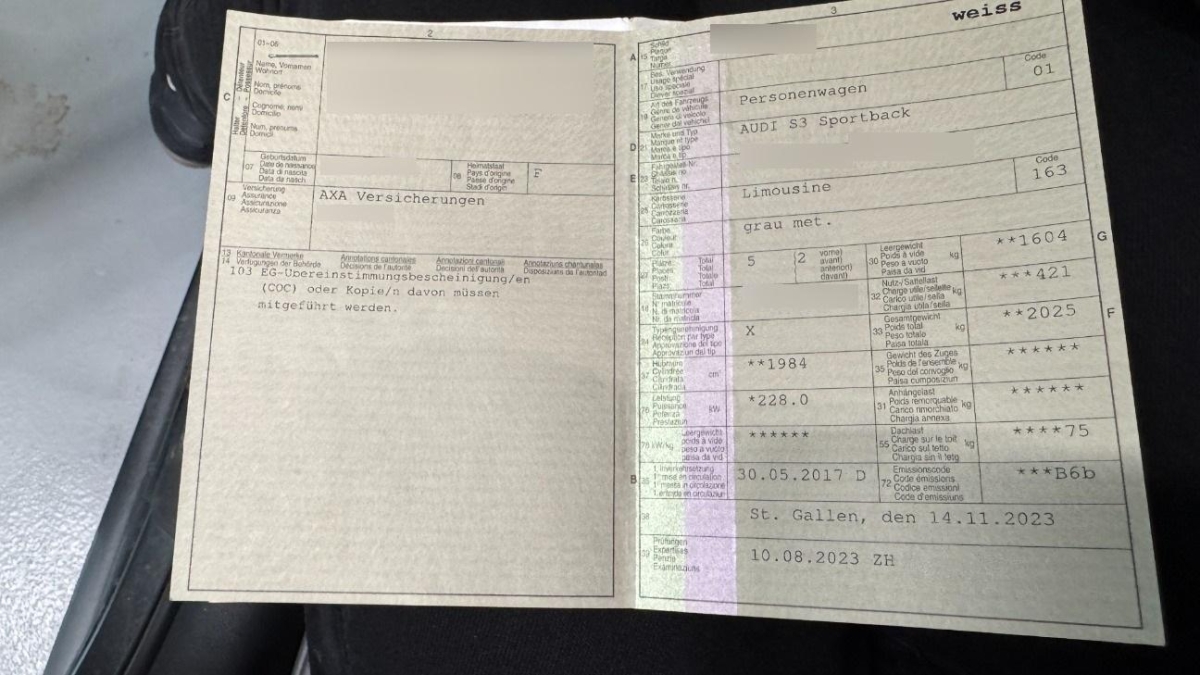 2
01-06
C
Halter - Détenteur
Detentore - Possessur
Name, Vornamen
Wohnort
Nom, prénoms
Domicile
Cognome, nomi
Domicilio
Num, prenums
Domicil
07
Geburtsdatum
Date de naissance
Data di nascita
Data da nasch.
08
Heimatstaat
Pays d'origine
Paese d'origine
Stadi d'origin
F
09
Versicherung
Assurance
Assicurazione
Assicuranza
AXA Versicherungen
13 Kantonale Vermerke Annotations cantonales Annotazioni cantonali Annotaziuns chantunalas
14 Verfügungen der Behörde Décisions de l'autorité Decisioni dell'autorità Disposiziuns da l'autoritad
103 EG-Übereinstimmungsbescheinigung/en
(COC) oder Kopie/n davon müssen
mitgeführt werden.
3
weiss
A 15
Schild
Plaque
Targa
Numer
17
Bes. Verwendung
Usage spécial
Uso speciale
Diever spezial
Code
01
19
Art des Fahrzeugs
Genre de véhicule
Genere di veicolo
Gener dal vehichel
Personenwagen
D 21
Marke und Typ
Marque et type
Marca e tipo
Marca e tip
AUDI S3 Sportback
E 23
Fahrgestell-Nr.
Châssis no
Telaio n.
Schassis nr.
25
Karosserie
Carrosserie
Carrozzeria
Carossaria
Limousine
Code
163
26
Farbe
Couleur
Colore
Colur
grau met.
27
Plätze: Total
Places: Total
Posti: Totale
Plazs: Total
5
(2
vorne)
avant)
anteriori)
davant)
30
Leergewicht
Poids à vide
Peso a vuoto
Paisa da vid
kg
**1604
G
18
Stammnummer
N° matricule
N. di matricola
Nr. da matricla
32
Nutz-/Sattellast
Charge utile/sellette
Carico utile/sella
Chargia utila/sella
kg
***421
24
Typengenehmigung
Réception par type
Approvazione del tipo
Approvaziun dal tip
X
33
Gesamtgewicht
Poids total
Peso totale
Paisa totala
kg
**2025
F
37
Hubraum
Cylindrée
Cilindrata
Cilindrada
cm³
**1984
35
Gewicht des Zuges
Poids de l'ensemble
Peso del convoglio
Paisa cumposiziun
kg
******
76
Leistung
Puissance
Potenza
Prestaziun
kW
*228.0
31
Anhängelast
Poids remorquable
Carico rimorchiato
Chargia annexa
kg
******
78 kW/kg
Leergewicht
poids à vide
peso a vuoto
paisa da vid
******
55
Dachlast
Charge sur le toit
Carico sul tetto
Chargia sin il tetg
kg
****75
B 36
1. Inverkehrsetzung
1re mise en circulation
1a messa in circolazione
1. entrada en circulaziun
30.05.2017 D
72
Emissionscode
Code émissions
Codice emissioni
Code d'emissiuns
***B6b
38
St. Gallen, den 14.11.2023
39
Prüfungen
Expertises
Perizie
Examinaziuns
10.08.2023 ZH